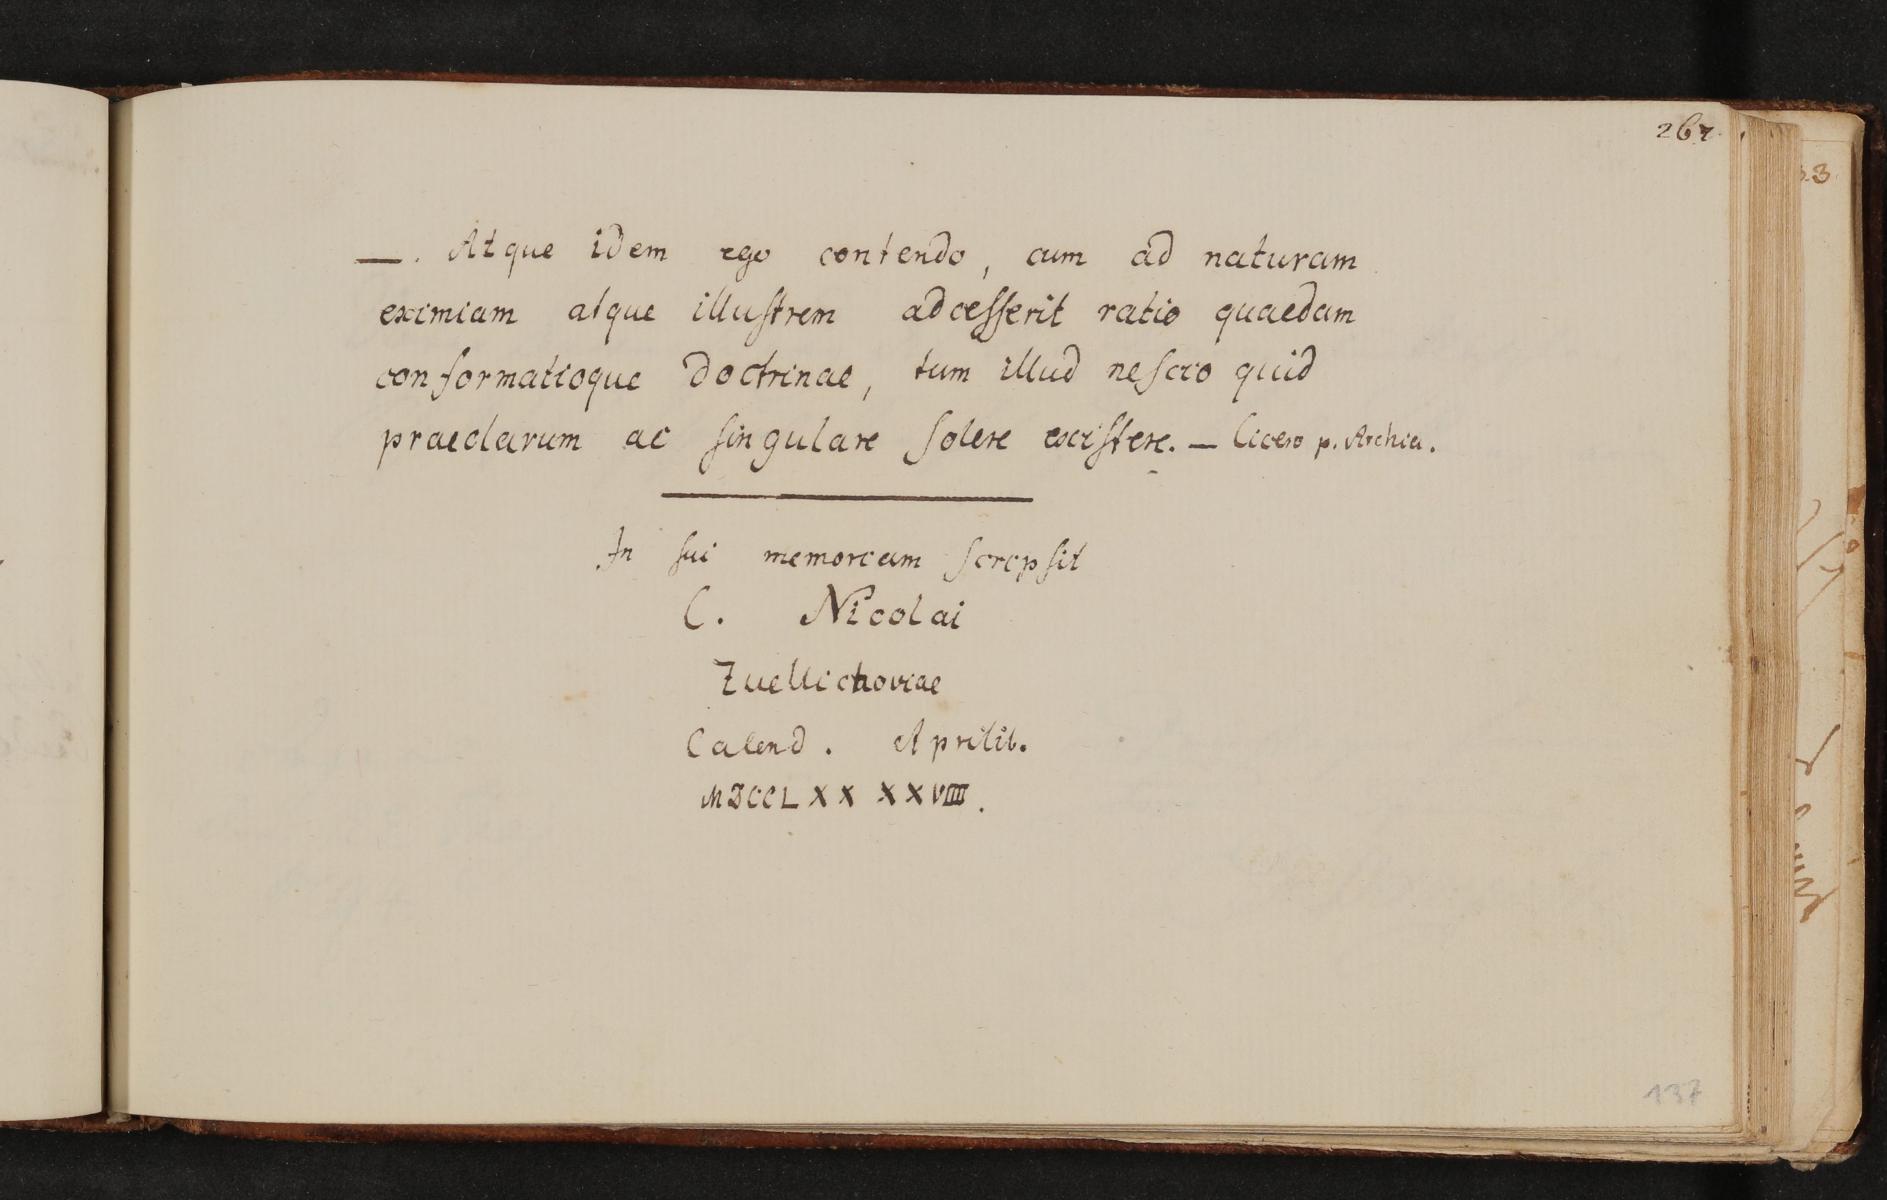 267
—. Atque idem ego contendo, cum ad naturam
eximiam atque illustrem adcesserit ratio quaedam
conformatioque doctrinae, tum illud nescio quid
praeclarum ac singulare solere existere. — Cicero p. Archia.
In sui memoriam scripsit
C. Nicolai
Zuellichoviae
Calend. Aprilib.
MDCCLXX XXVIIII.
137